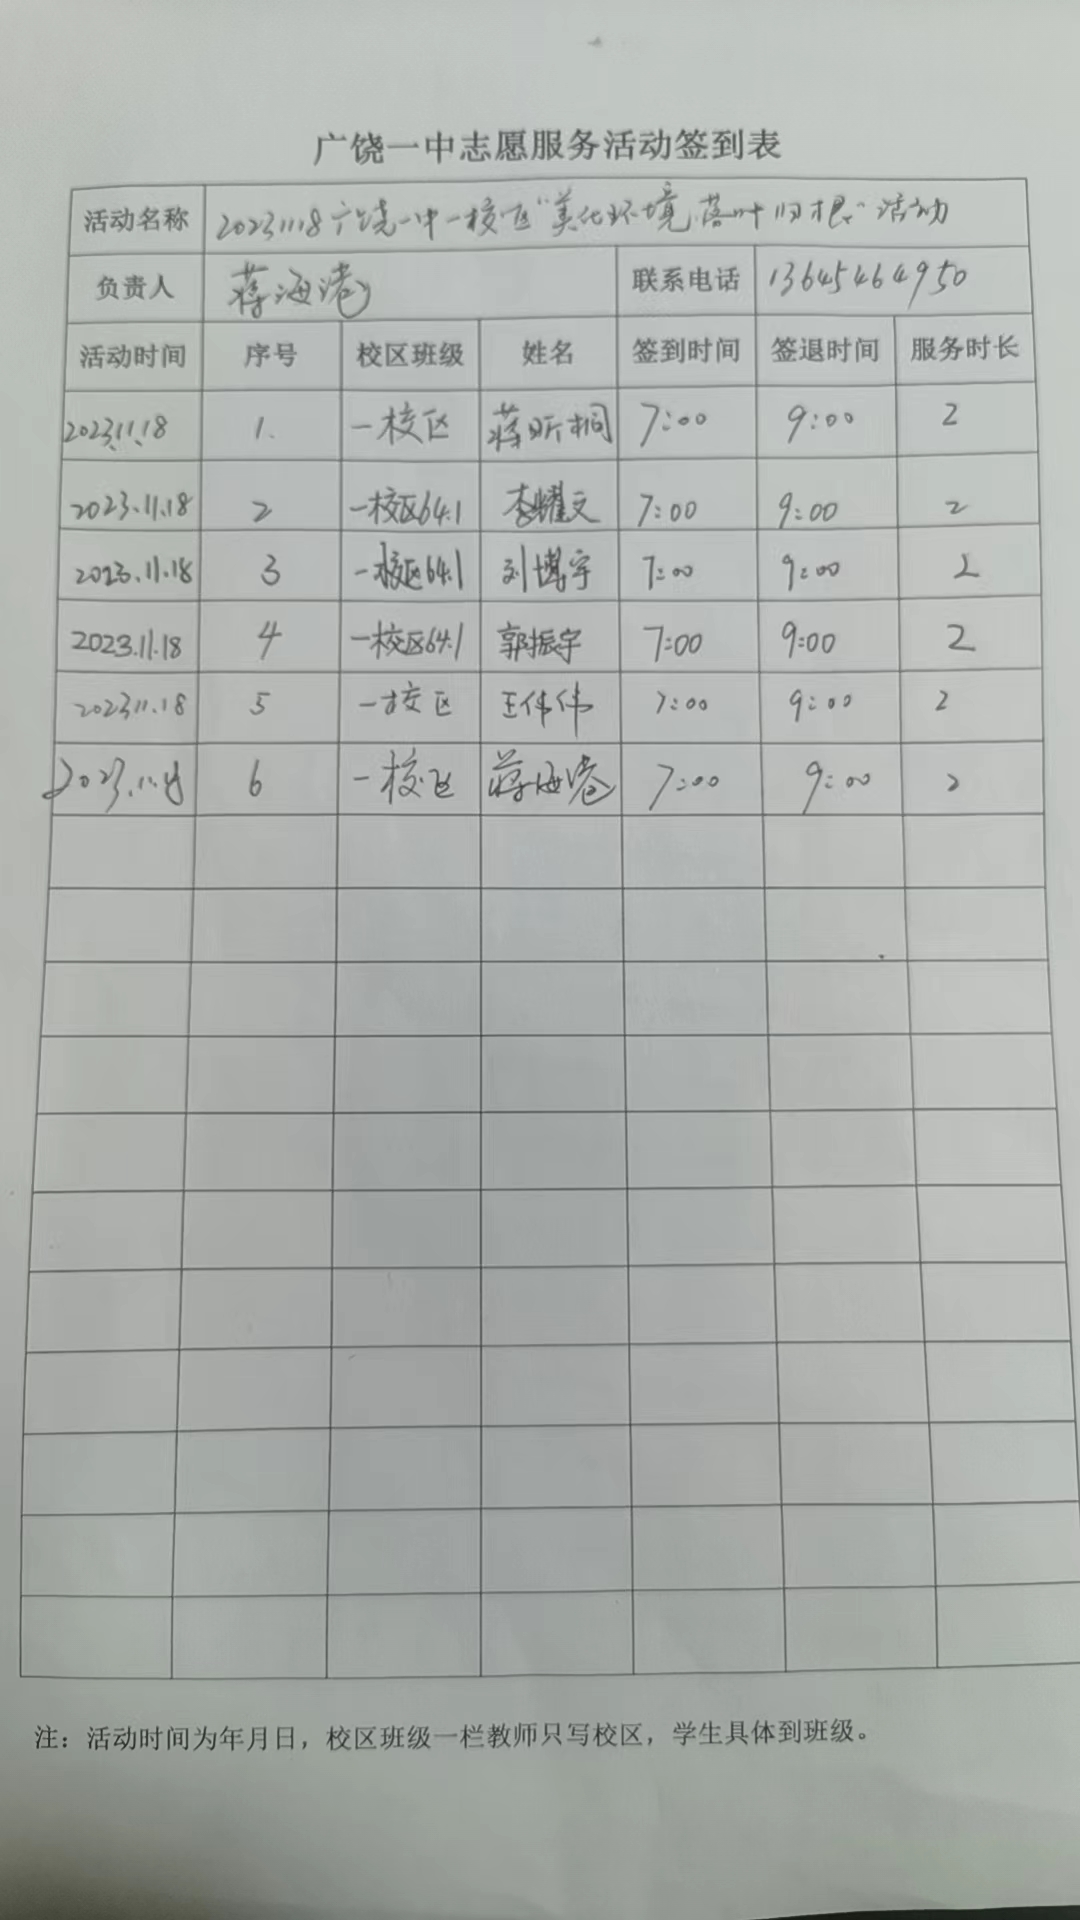 广饶一中志愿服务活动签到表
活动名称 20231118广饶一中一校区"美化环境,落叶归根"活动
负责人 蒋海港 联系电话 13645464950
活动时间 序号 校区班级 姓名 签到时间 签退时间 服务时长
2023.11.18 1. 一校区 蒋昕桐 7:00 9:00 2
2023.11.18 2 一校区64.1 李耀文 7:00 9:00 2
2023.11.18 3 一校区64.1 刘博宇 7:00 9:00 2
2023.11.18 4 一校区64.1 郭振宇 7:00 9:00 2
202311.18 5 一校区 王伟伟 7:00 9:00 2
2023.11.18 6 一校区 蒋海港 7:00 9:00 2
注：活动时间为年月日，校区班级一栏教师只写校区，学生具体到班级。